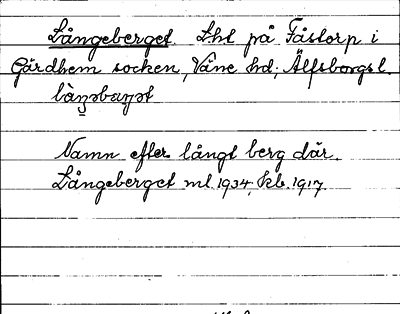 Långeberget. Lht på Fåstorp i
Gärdhem socken, Väne hd; Älfsborgs l.
Namn efter långt berg där.
Långeberget ml. 1934, kb. 1917